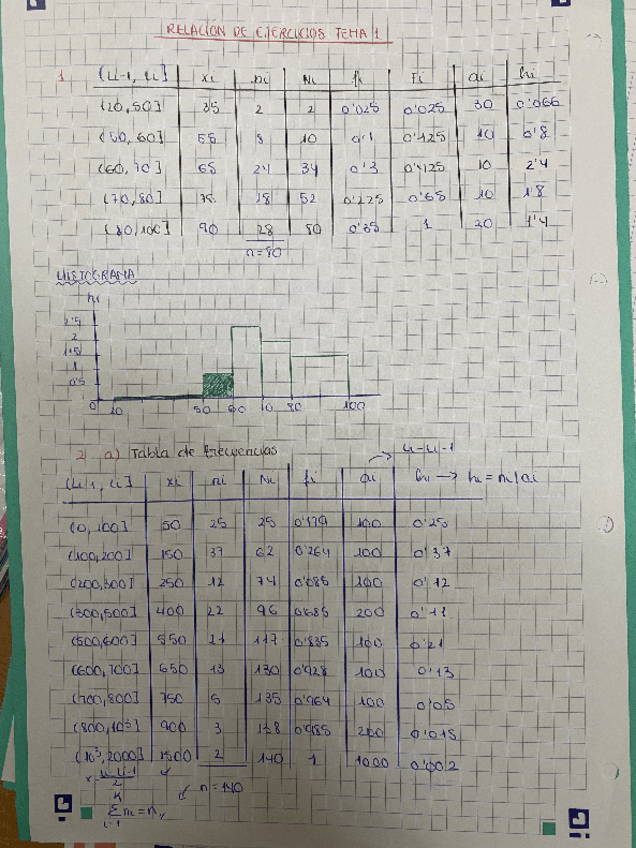 RELACIÓN DE EJERCICIOS TEMA 1
1. (Li-1, Li] xi ni Ni fi Fi ai hi
(20,50] 35 2 2 0'025 0'025 30 0'066
(50, 60] 55 8 10 0'1 0'125 10 0'8
(60, 70] 65 24 34 0'3 0'4125 10 2'4
(70, 80] 75 18 52 0'225 0'65 10 1'8
(80,100] 90 28 80 0'35 1 20 1'4
n=80
HISTOGRAMA
hi
2'5
2
1'5
1
0'5
0 20 50 60 70 80 100
2 a) Tabla de frecuencias
Li-Li-1
(Li-1, Li] xi ni Ni fi ai hi → hi = ni/ai
(0, 100] 50 25 25 0'179 100 0'25
(100,200] 150 37 62 0'264 100 0'37
(200,300] 250 12 74 0'085 100 0'12
(300,500] 400 22 96 0'685 200 0'11
(500,600] 550 21 117 0'835 100 0'21
(600,700] 650 13 130 0'928 100 0'13
(700,800] 750 5 135 0'964 100 0'05
(800,10³] 900 3 138 0'985 200 0'015
(10³,2000] 1500 2 140 1 1000 0'002
n=140
k
Σ ni = n
i=1